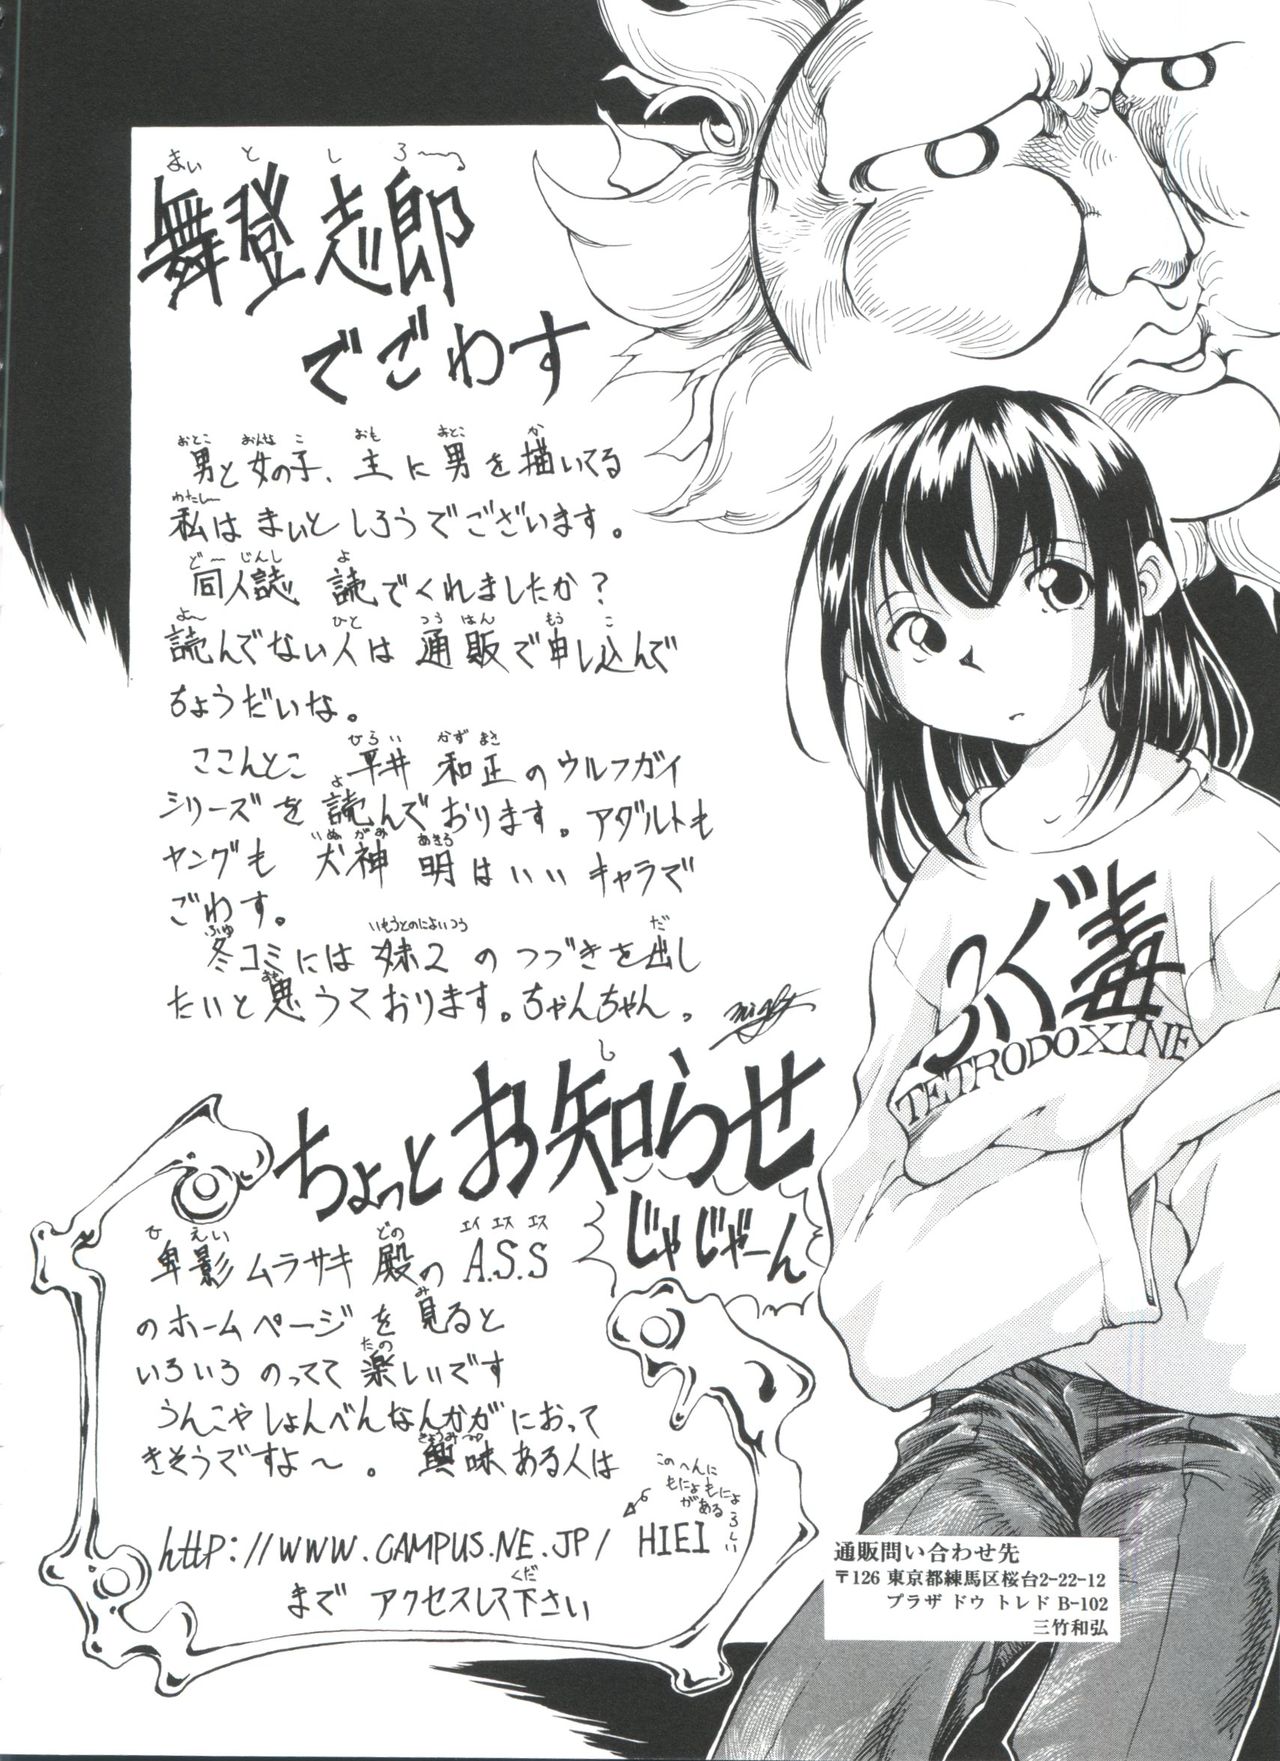 まいとしろ〜る
舞登志郎
でごわす
男と女の子、主に男を描いてる
私はまいとしろうでございます。
同人誌 読んでくれましたか?
読んでない人は通販で申し込んで
ちょうだいな。
ここんとこ 平井和正のウルフガイ
シリーズを読んでおります。アダルトも
ヤングも 犬神 明はいいキャラで
ごわす。
冬コミには妹2のつづきを出し
たいと思うております。ちゃんちゃん。
ちょっとお知らせ
じゃじゃーん
卑影ムラサキ殿のA.S.S
のホームページを見ると
いろいろのってて楽しいです
うんこやしょんべんなんかがにおって
きそうですよ〜。興味ある人は
このへんに
もにょもにょ
がある
らしい
http://WWW.CAMPUS.NE.JP/ HIEI
まで アクセスして下さい
ふぐ毒
TETRODOXINE
通販問い合わせ先
〒126 東京都練馬区桜台2-22-12
プラザ ドウ トレド B-102
三竹和弘